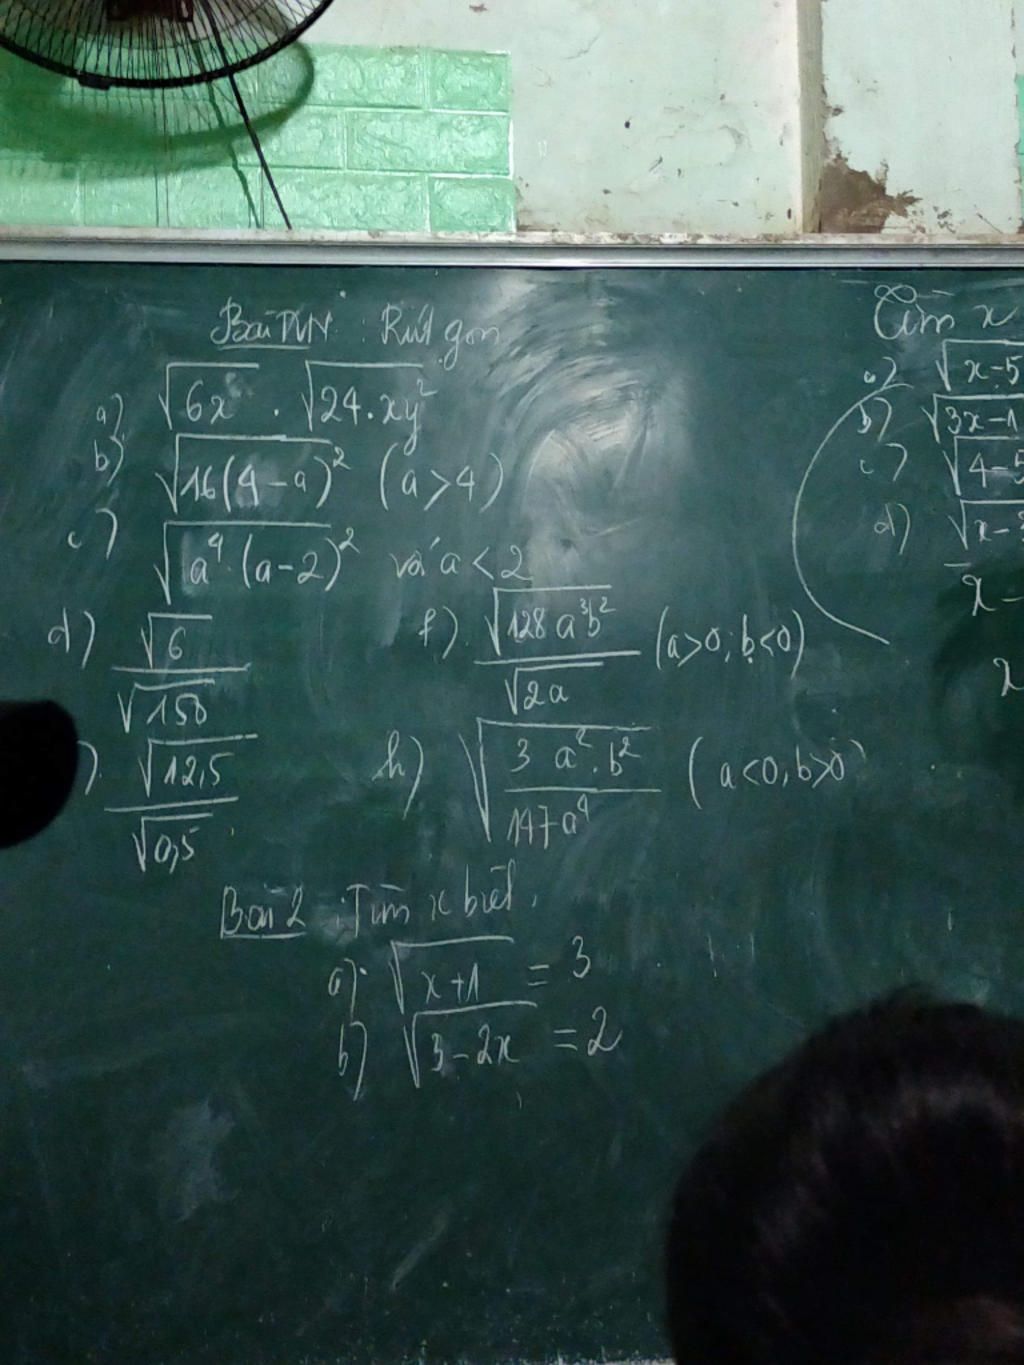 Bài TVN: Rút gọn
a) √6x . √24.xy²
b) √16(4-a)² (a>4)
c) √a⁴.(a-2)² với a<2
d) √6/√150
f) √128a³b²/√2a (a>0; b<0)
) √12,5/√0,5
h) √(3a².b²/147a⁴) (a<0, b>0)
Bài 2: Tìm x biết.
a). √x+1 = 3
b) √3-2x = 2
Tìm x
a) √x-5
b) √3x-1
c) √4-5
d) √x-3
x-
x